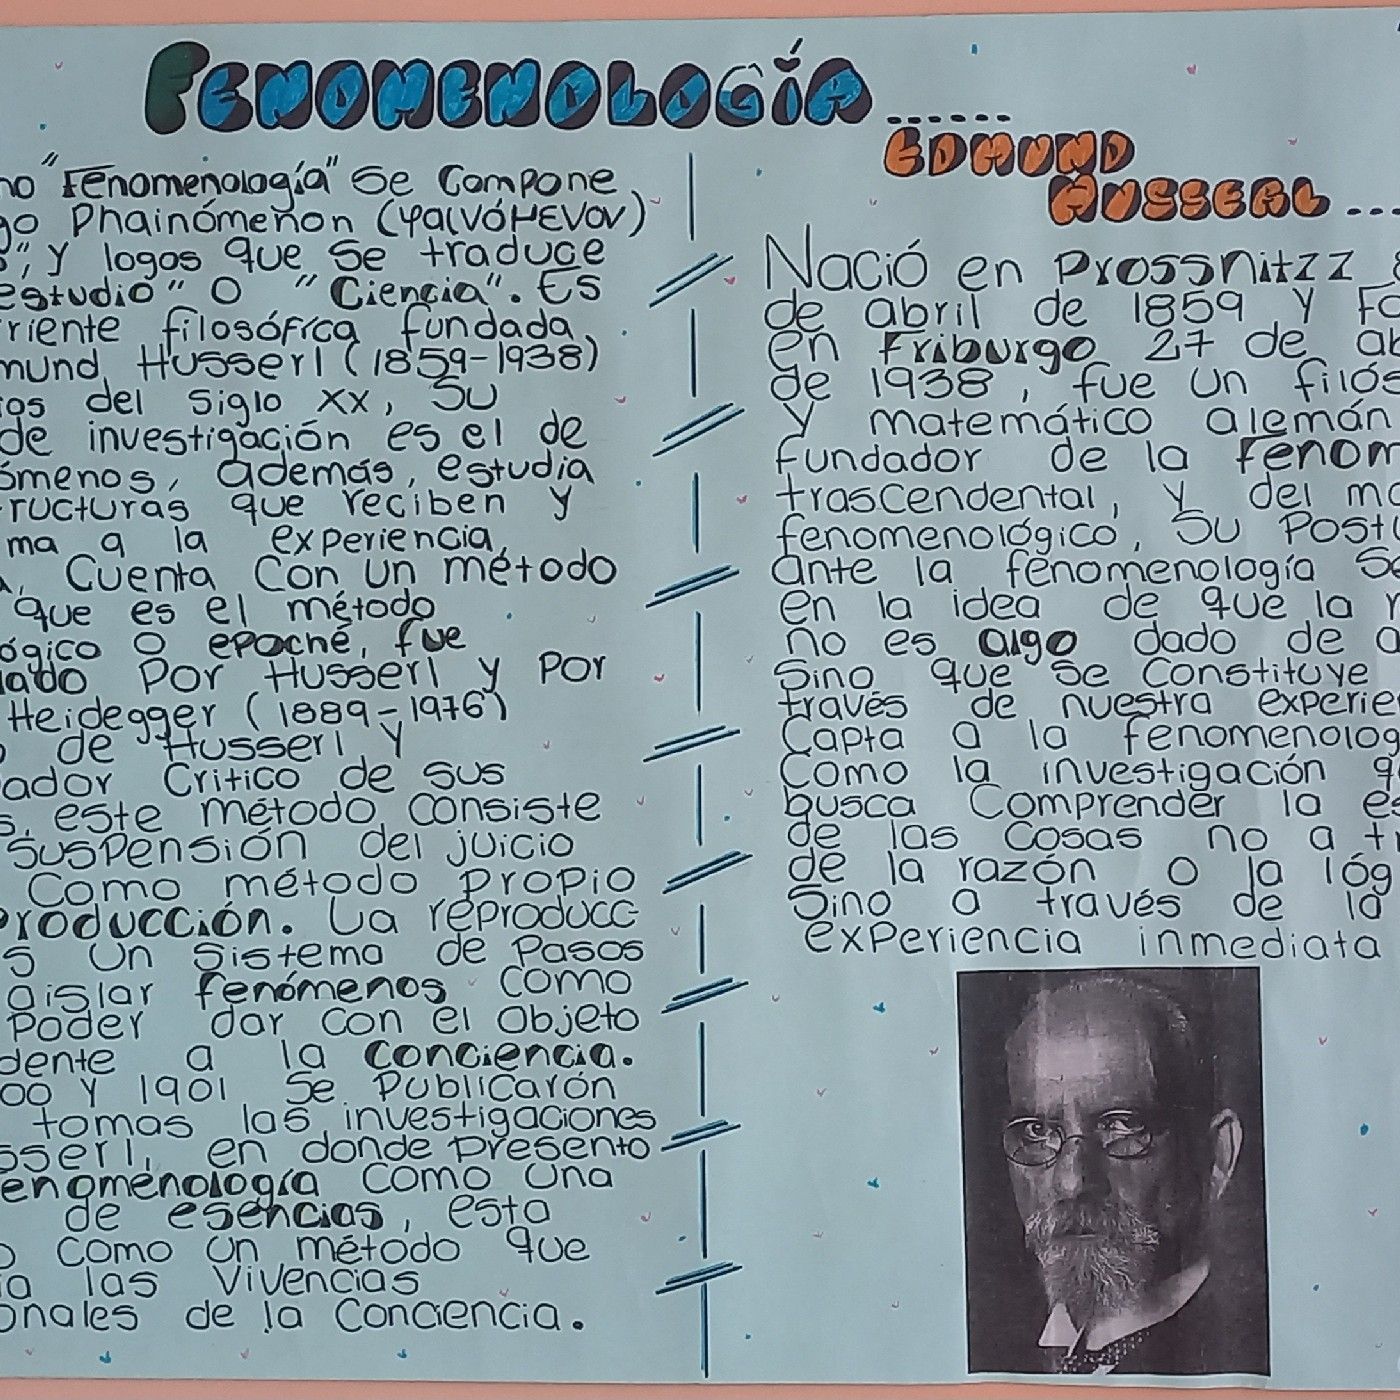 FENOMENOLOGÍA......
no "Fenomenología" se compone
go Phainómenon (φαινόμενον)
", y logos que se traduce
estudio" o "Ciencia". Es
riente filosófica fundada
mund Husserl (1859-1938)
ios del siglo XX, su
de investigación es el de
ómenos, además, estudia
ructuras que reciben y
ma a la experiencia
a, cuenta con un método
que es el método
ógico o epoché, fue
lado por Husserl y por
Heidegger (1889-1976)
o de Husserl y
ador critico de sus
s, este método consiste
suspensión del juicio
como método propio
producción. La reproducc
s un sistema de pasos
aislar fenómenos como
poder dar con el objeto
dente a la conciencia.
00 y 1901 se publicarón
tomas las investigaciones
sserl, en donde presento
enomenología como una
de esencias, esta
o como un método que
ia las vivencias
onales de la conciencia.
EDMUND
HUSSERL...
Nació en Prossnitzz 8
de abril de 1859 y Fa
en Friburgo 27 de ab
de 1938, fue un filós
y matemático alemán
fundador de la Fenom
trascendental, y del mo
fenomenológico, su post
ante la fenomenología se
en la idea de que la r
no es algo dado de a
sino que se constituye
través de nuestra experie
Capta a la fenomenolog
como la investigación q
busca comprender la e
de las cosas no a t
de la razón o la lóg
sino a través de la
experiencia inmediata